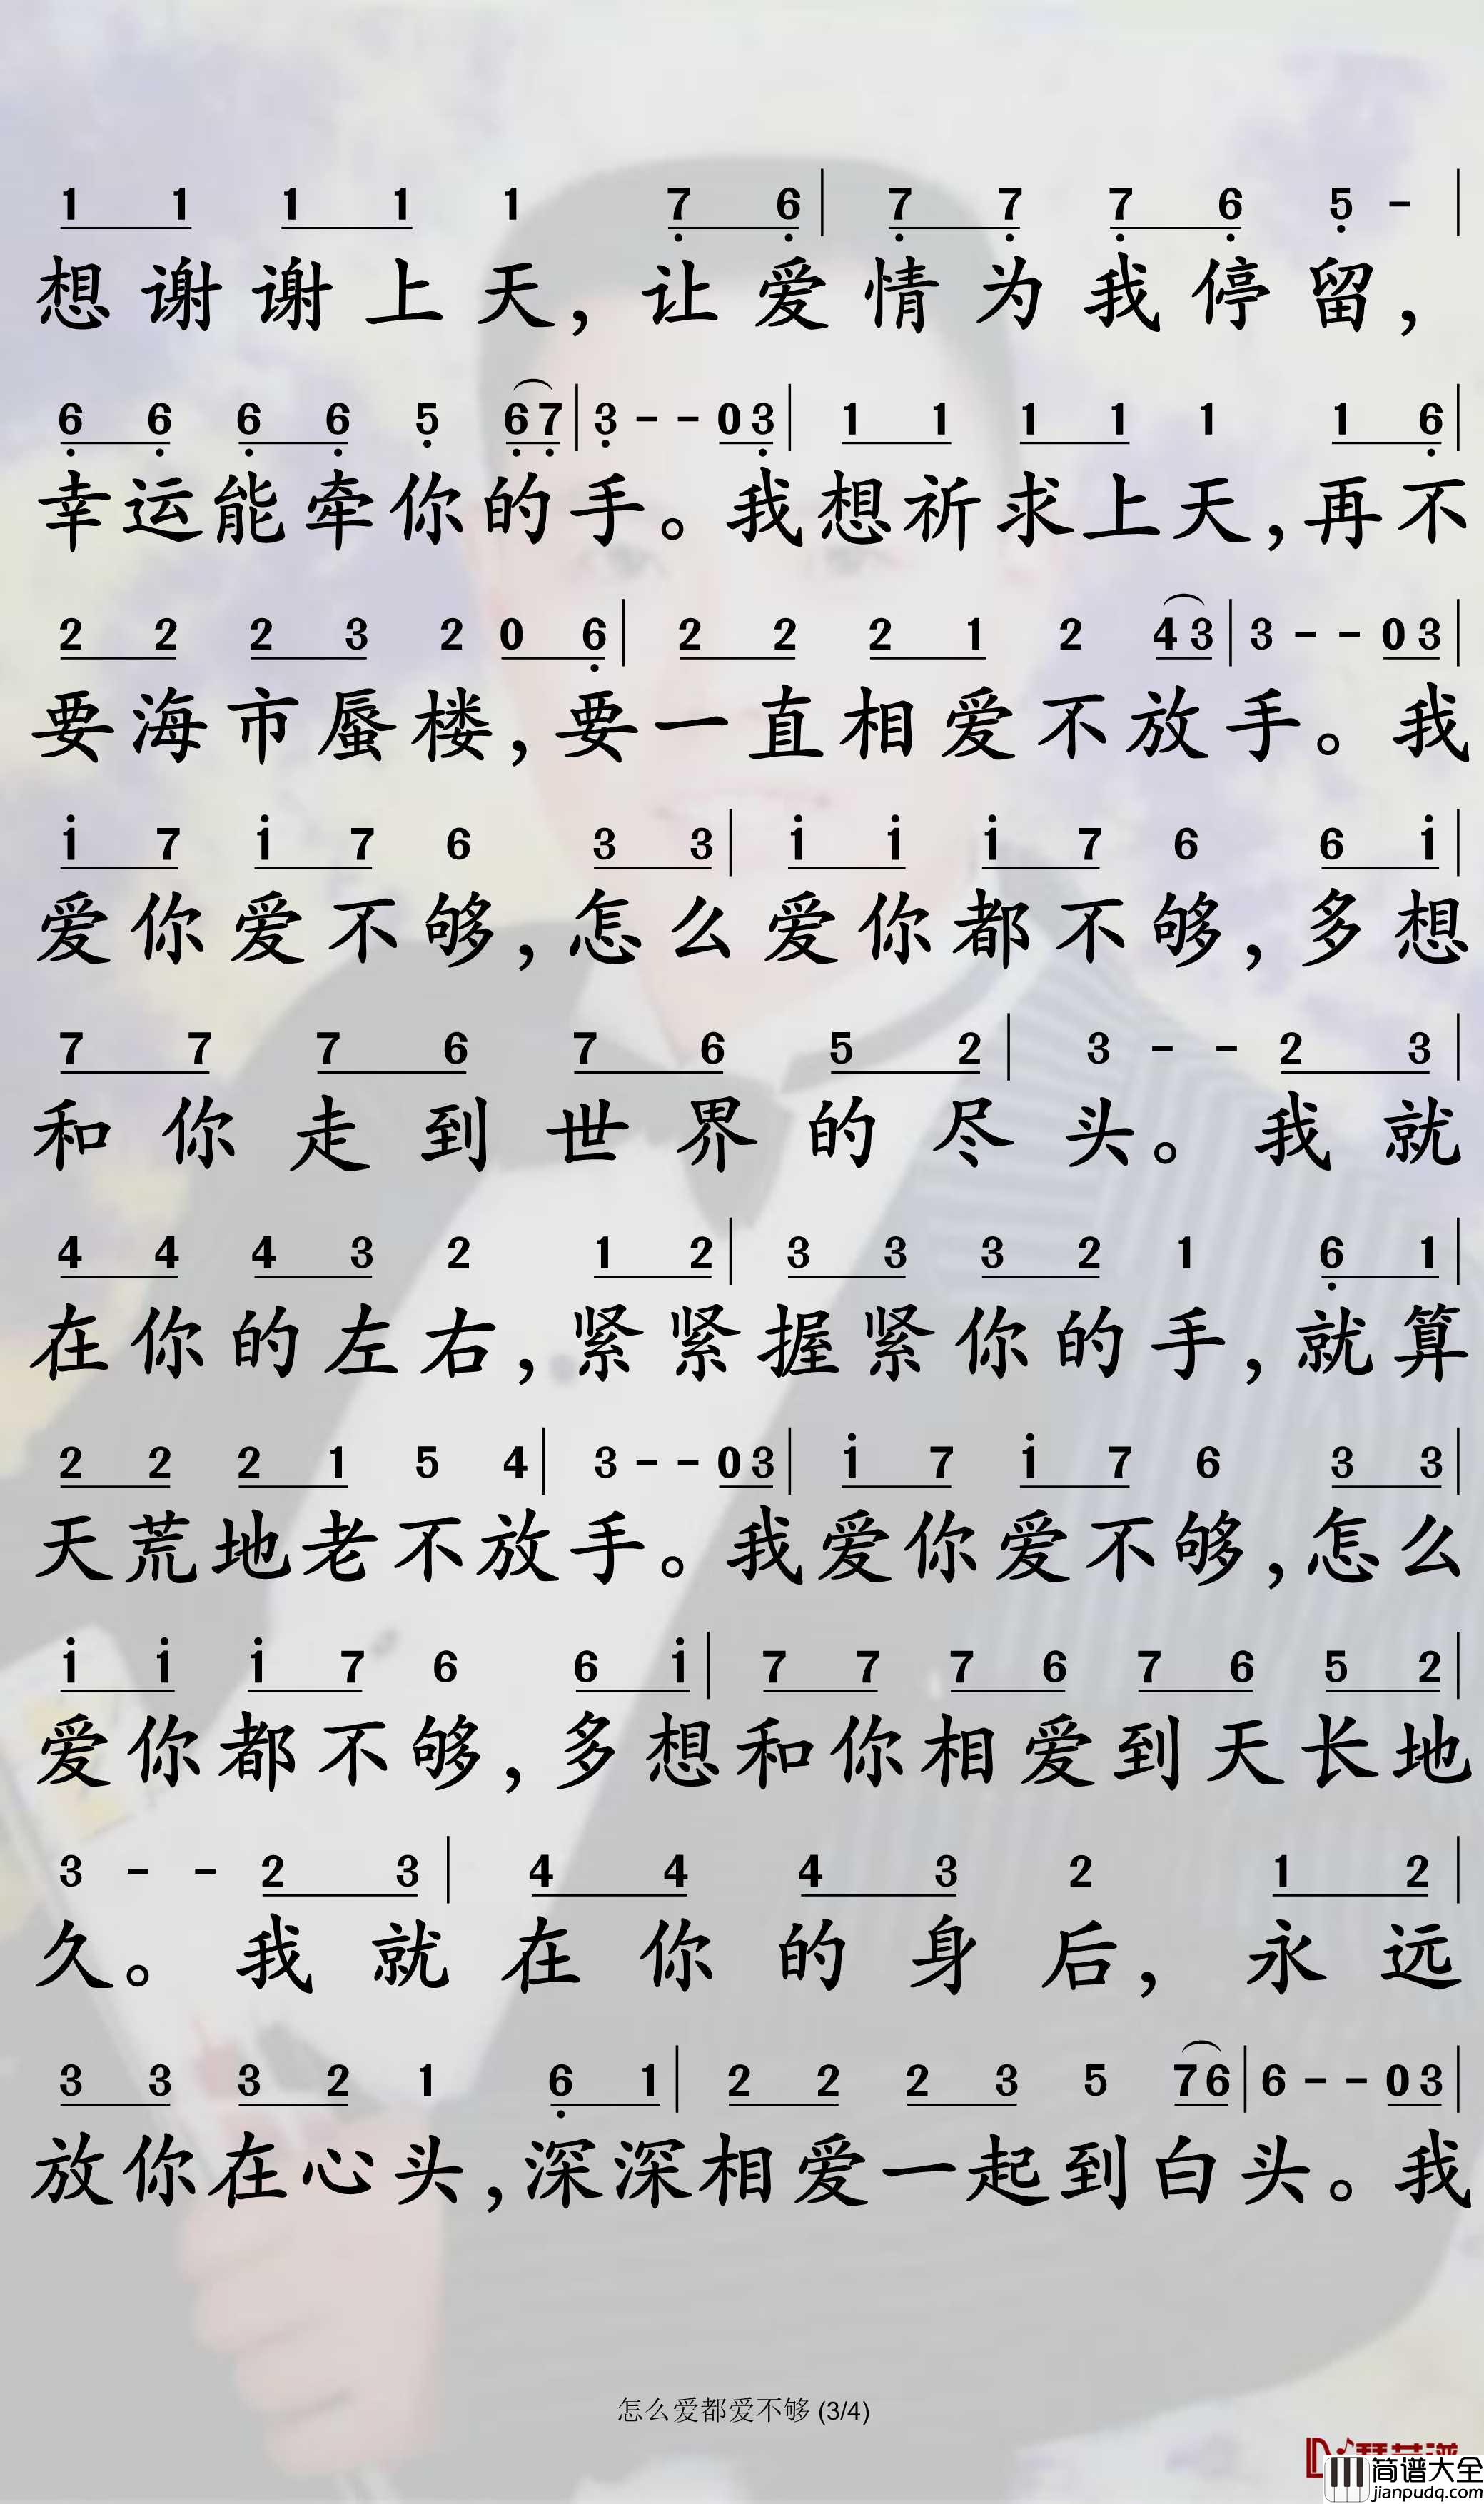 1 1 1 1 1 7̣ 6̣ | 7̣ 7̣ 7̣ 6̣ 5̣ - |
想谢谢上天，让爱情为我停留，
6̣ 6̣ 6̣ 6̣ 5̣ 6̣ 7̣ | 3̣ - - 0 3̣ | 1 1 1 1 1 1 6̣ |
幸运能牵你的手。我想祈求上天，再不
2 2 2 3 2 0 6̣ | 2 2 2 1 2 4 3 | 3 - - 0 3 |
要海市蜃楼，要一直相爱不放手。我
1̇ 7 1̇ 7 6 3 3 | 1̇ 1̇ 1̇ 7 6 6 1̇ |
爱你爱不够，怎么爱你都不够，多想
7 7 7 6 7 6 5 2 | 3 - - 2 3 |
和你走到世界的尽头。我就
4 4 4 3 2 1 2 | 3 3 3 2 1 6̣ 1 |
在你的左右，紧紧握紧你的手，就算
2 2 2 1 5 4 | 3 - - 0 3 | 1̇ 7 1̇ 7 6 3 3 |
天荒地老不放手。我爱你爱不够，怎么
1̇ 1̇ 1̇ 7 6 6 1̇ | 7 7 7 6 7 6 5 2 |
爱你都不够，多想和你相爱到天长地
3 - - 2 3 | 4 4 4 3 2 1 2 |
久。我就在你的身后，永远
3 3 3 2 1 6̣ 1 | 2 2 2 3 5 7 6 | 6 - - 0 3 |
放你在心头，深深相爱一起到白头。我
怎么爱都爱不够 (3/4)
简谱大全
jianpudq.com